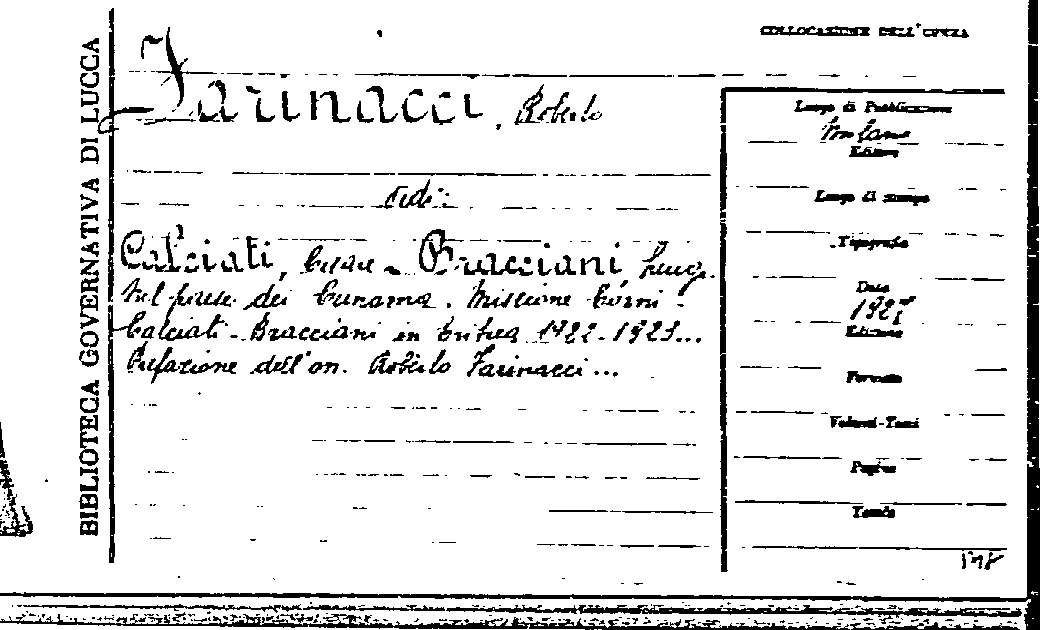 BIBLIOTECA GOVERNATIVA DI LUCCA
COLLOCAZIONE DELL'OPERA
Farinacci, Roberto
vedi:
Calciati, Cesare - Bracciani, Luigi
Nel paese dei Cunama. Missione Córni-
Calciati-Bracciani in Eritrea 1922-1923...
Prefazione dell'on. Roberto Farinacci...
Luogo di Pubblicazione
Milano
Editore
Luogo di stampa
Tipografia
Data
Edizione
Formato
Volumi-Tomi
Pagine